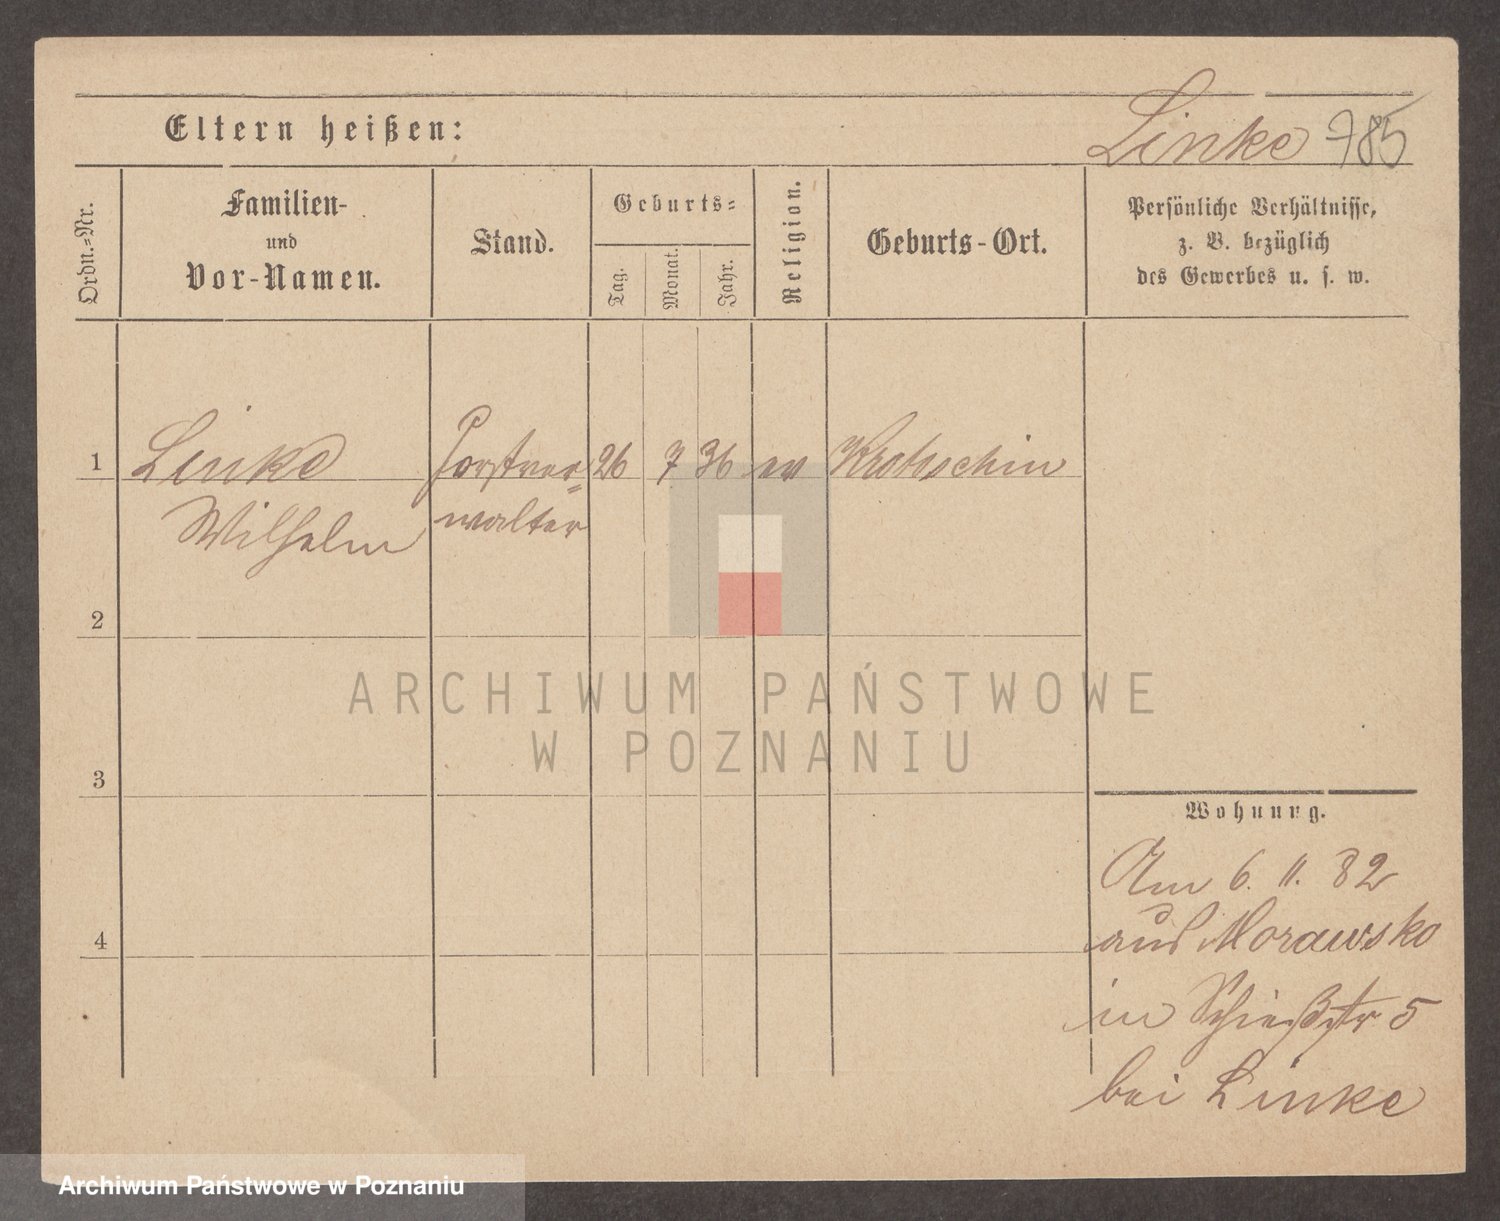 Linke 785
Eltern heißen:
Ordn.-Nr.
Familien-
und
Vor-Namen.
Stand.
Geburts-
Tag.
Monat.
Jahr.
Religion.
Geburts-Ort.
Persönliche Verhältnisse,
z. B. bezüglich
des Gewerbes u. s. w.
1 Linke Forstver= 26 7 36 ev Krotoschin
Wilhelm walter
2
3
4
Wohnung.
Am 6. 11. 82
aus Morawsko
in Schießstr 5
bei Linke
ARCHIWUM PAŃSTWOWE
W POZNANIU
Archiwum Państwowe w Poznaniu